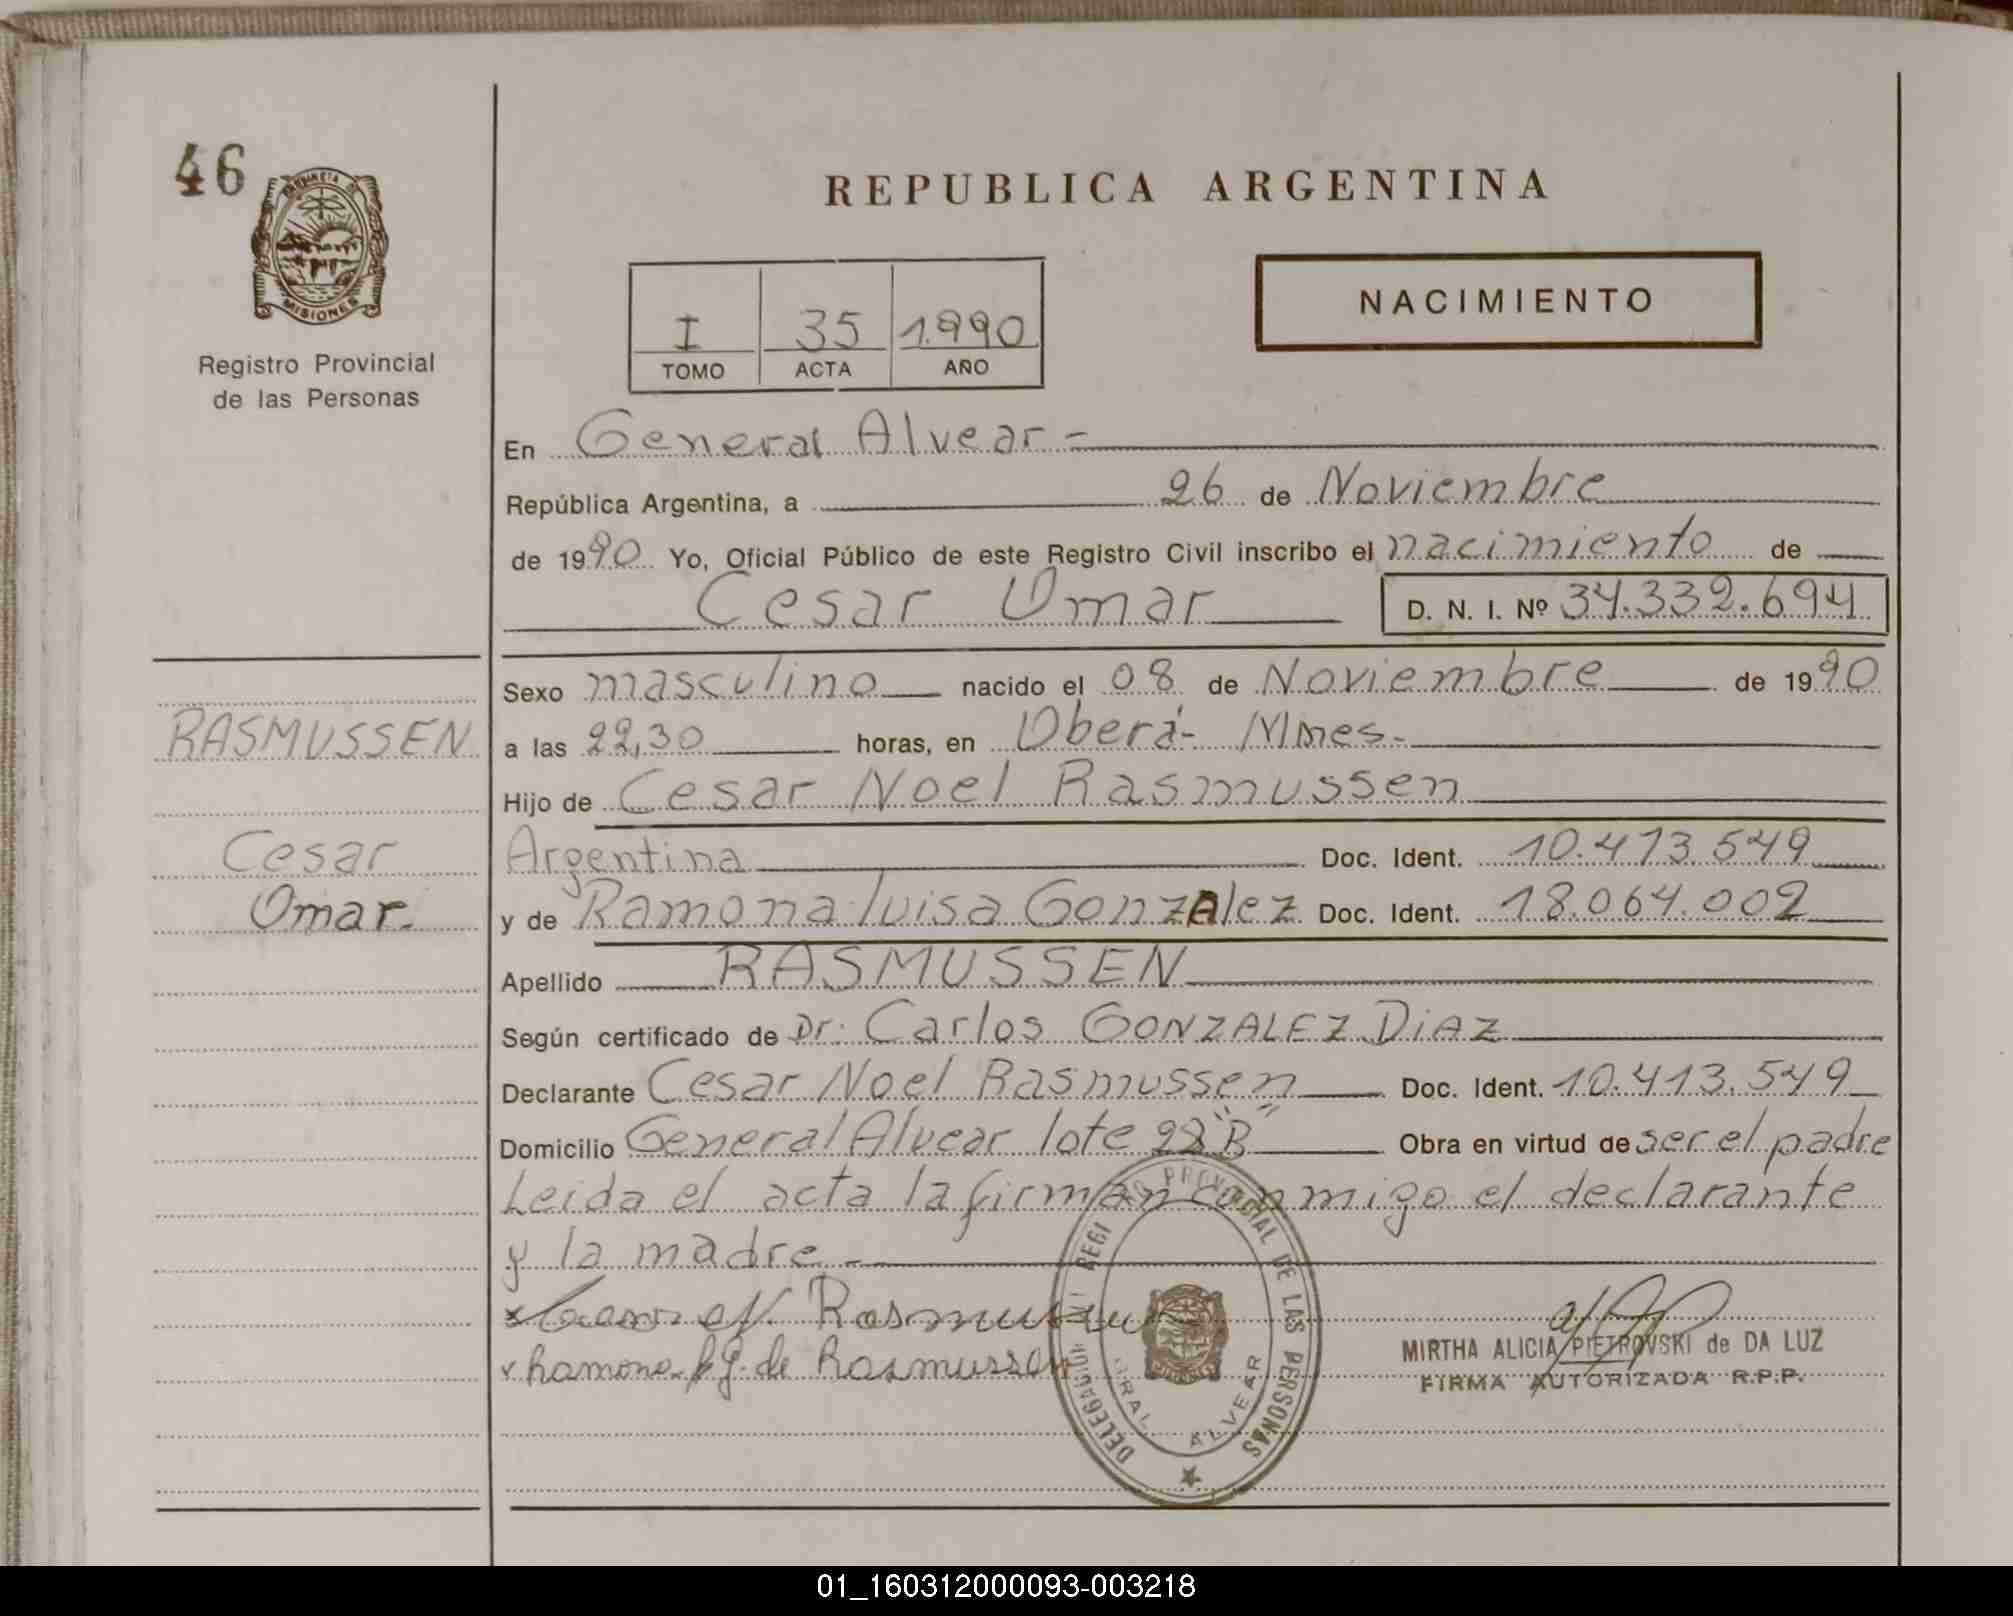 46
PROVINCIA DE
MISIONES
Registro Provincial
de las Personas
REPUBLICA ARGENTINA
I 35 1.990
TOMO ACTA AÑO
NACIMIENTO
En General Alvear -
República Argentina, a 26 de Noviembre
de 1990 Yo, Oficial Público de este Registro Civil inscribo el nacimiento de
Cesar Omar D. N. I. Nº 34.332.694
Sexo masculino nacido el 08 de Noviembre de 1990
RASMUSSEN
a las 22,30 horas, en Oberá - Mnes.
Hijo de Cesar Noel Rasmussen
Cesar
Argentina Doc. Ident. 10.413.549
Omar.
y de Ramona luisa GonzAlez Doc. Ident. 18.064.002
Apellido RASMUSSEN
Según certificado de Dr. Carlos GONZALEZ DIAZ
Declarante Cesar Noel Rasmussen Doc. Ident. 10.413.549
Domicilio General Alvear lote 22 "B" Obra en virtud de ser el padre
Leida el acta la firman conmigo el declarante
y la madre.-
x Cesar N. Rasmussen
x Ramona L G. de Rasmussen
DELEGACION REGISTRO PROVINCIAL DE LAS PERSONAS
GENERAL ALVEAR
MIRTHA ALICIA PIETROVSKI de DA LUZ
FIRMA AUTORIZADA R.P.P.
01_160312000093-003218